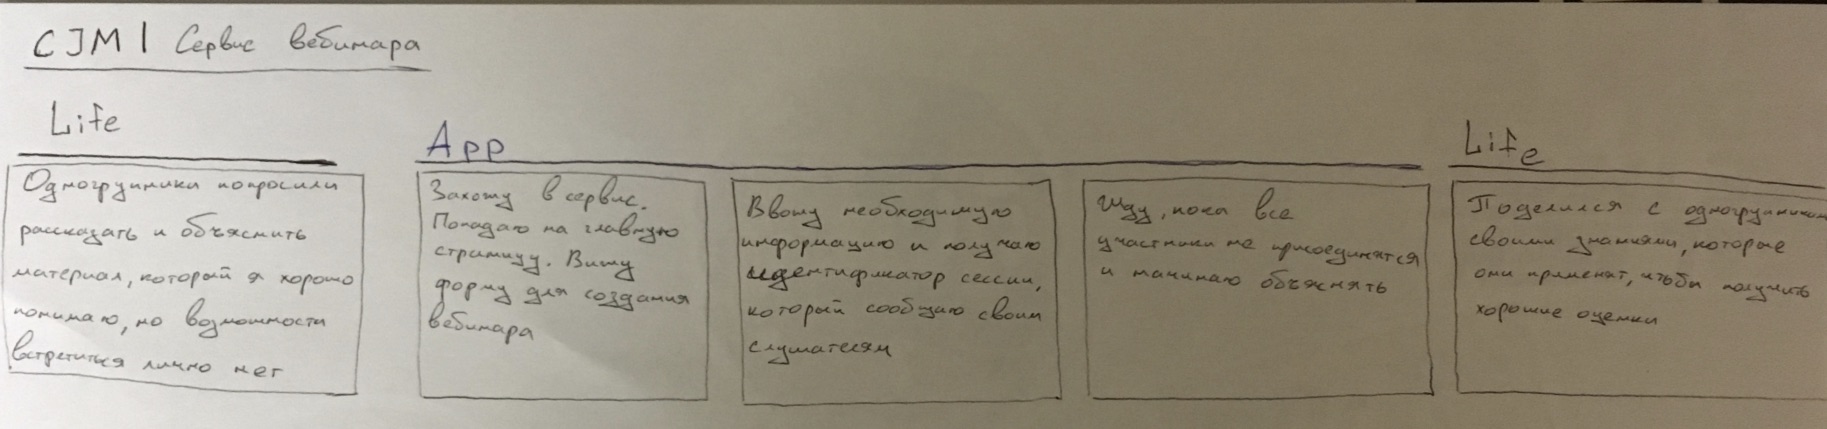 CJM | Сервис вебинара
Life
Одногрупники попросили
рассказать и объяснить
материал, который я хорошо
понимаю, но возможности
встретиться лично нет
App
Захожу в сервис.
Попадаю на главную
страницу. Вижу
форму для создания
вебинара
Ввожу необходимую
информацию и получаю
идентификатор сессии,
который сообщаю своим
слушателям
Жду, пока все
участники не присоединятся
и начинаю объяснять
Life
Поделился с одногрупниками
своими знаниями, которые
они применят, чтобы получить
хорошие оценки